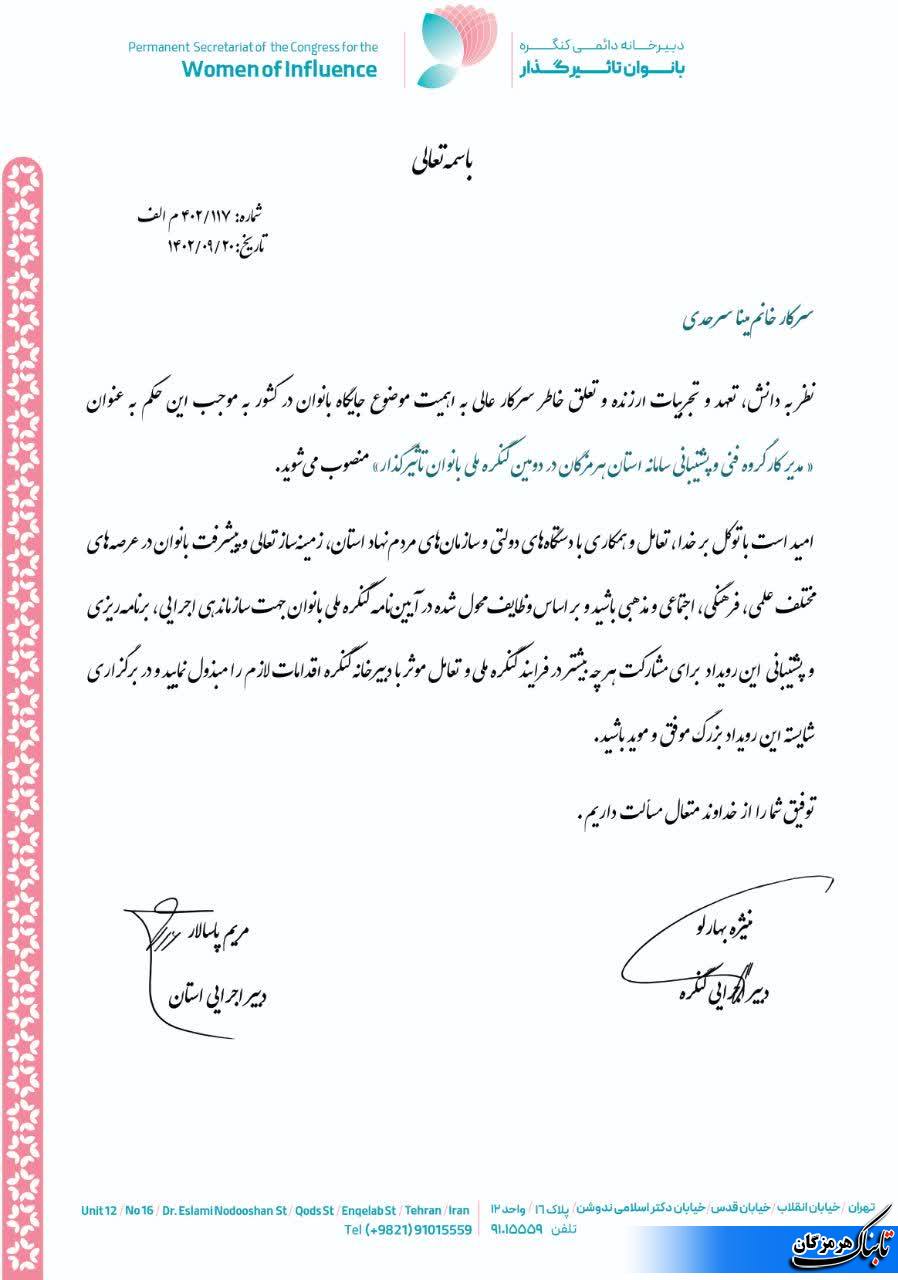 Permanent Secretariat of the Congress for the
Women of Influence
دبیرخـــانه دائمــی کنگـــره
بانــوان تاثــیرگــذار
باسمه تعالی
شماره: ۴۰۲/۱۱۷ م الف
تاریخ: ۱۴۰۲/۰۹/۲۰
سرکار خانم مینا سرحدی
نظر به دانش، تعهد و تجربیات ارزنده و تعلق خاطر سرکار عالی به اهمیت موضوع جایگاه بانوان در کشور به موجب این حکم به عنوان
« مدیر کارگروه فنی و پشتیبانی سامانه استان هرمزگان در دومین کنگره ملی بانوان تأثیرگذار» منصوب می‌شوید.
امید است با توکل بر خدا، تعامل و همکاری با دستگاه‌های دولتی و سازمان‌های مردم نهاد استان، زمینه‌ساز تعالی و پیشرفت بانوان در عرصه‌های
مختلف علمی، فرهنگی، اجتماعی و مذهبی باشید و بر اساس وظایف محول شده در آیین‌نامه کنگره ملی بانوان جهت سازماندهی اجرایی، برنامه‌ریزی
و پشتیبانی این رویداد برای مشارکت هرچه بیشتر در فرایند کنگره ملی و تعامل موثر با دبیرخانه کنگره اقدامات لازم را مبذول نمایید و در برگزاری
شایسته این رویداد بزرگ موفق و موید باشید.
توفیق شما را از خداوند متعال مسألت داریم .
منیژه بهارلو
دبیر اجرایی کنگره
مریم پاسالار
دبیر اجرایی استان
تهران / خیابان انقلاب / خیابان قدس / خیابان دکتر اسلامی ندوشن / پلاک ۱۶ / واحد ۱۲
تلفن ۹۱۰۱۵۵۵۹
Unit 12 / No 16 / Dr. Eslami Nodooshan St / Qods St / Enqelab St / Tehran / Iran
Tel (+9821) 91015559
تابناک هرمزگان